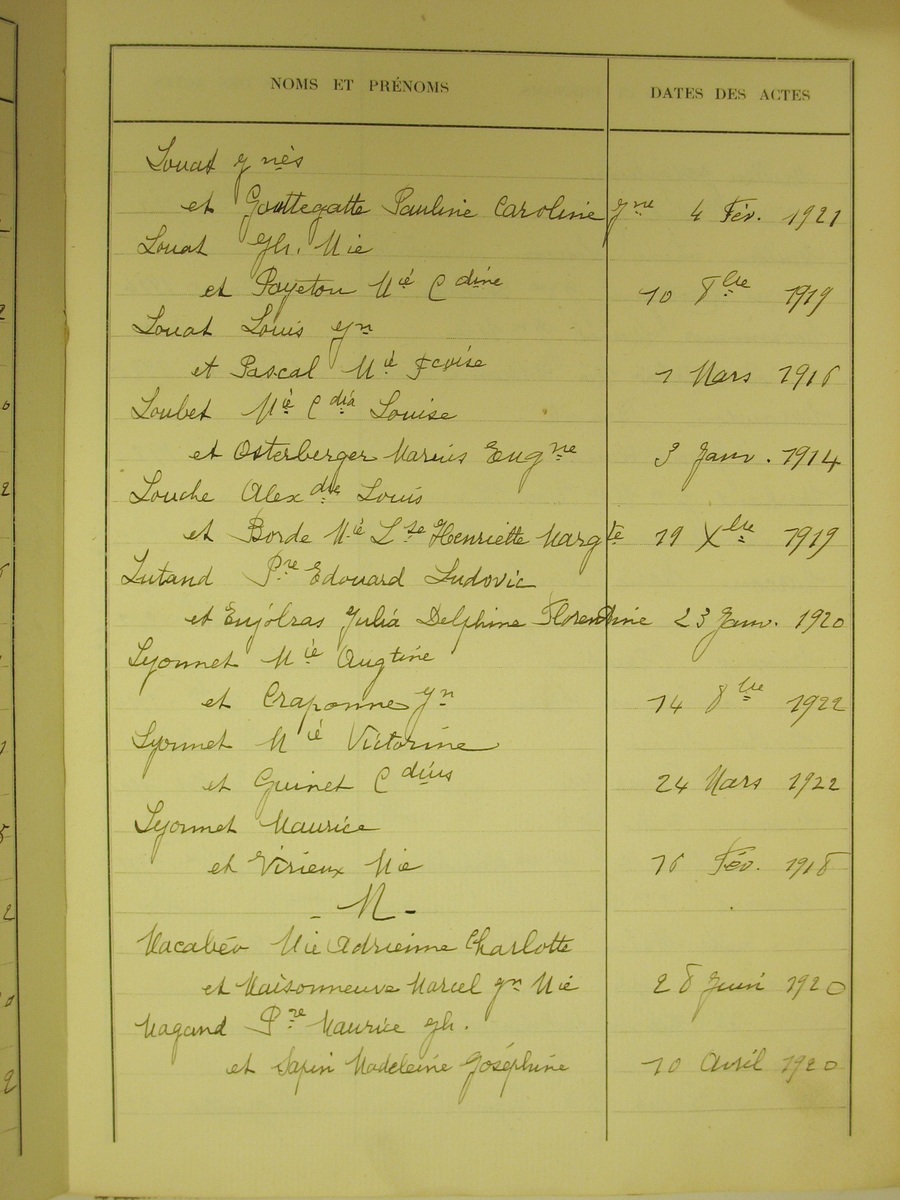 NOMS ET PRÉNOMS DATES DES ACTES
Louat Jnès
et Gouttegatte Pauline Caroline Jne 4 Fév. 1921
Louat Jh. Mie
et Payeton Mie Cdine 10 8bre 1919
Louat Louis Jn
et Pascal Mie Fçoise 1 Mars 1916
Loubet Mie Cdia Louise
et Osterberger Marius Eugne 3 Janv. 1914
Louche Alexdre Louis
et Borde Mie Lse Henriette Margte 19 Xbre 1919
Lutand Pre Edouard Ludovic
et Enjolras Julia Delphine Florentine 23 Janv. 1920
Lyonnet Mie Augtine
et Craponne Jn 14 8bre 1922
Lyonnet Mie Victorine
et Guinet Cdius 24 Mars 1922
Lyonnet Maurice
et Virieux Mie 16 Fév. 1918
- M -
Macabéo Mie Adrienne Charlotte
et Maisonneuve Marcel Jn Mie 28 Juin 1920
Magand Pre Maurice Jh.
et Sapin Madeleine Joséphine 10 Avril 1920